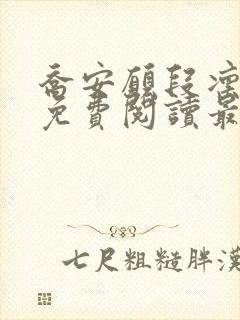 喬安願段凜
免費閱讀最
七尺粗糙胖漢